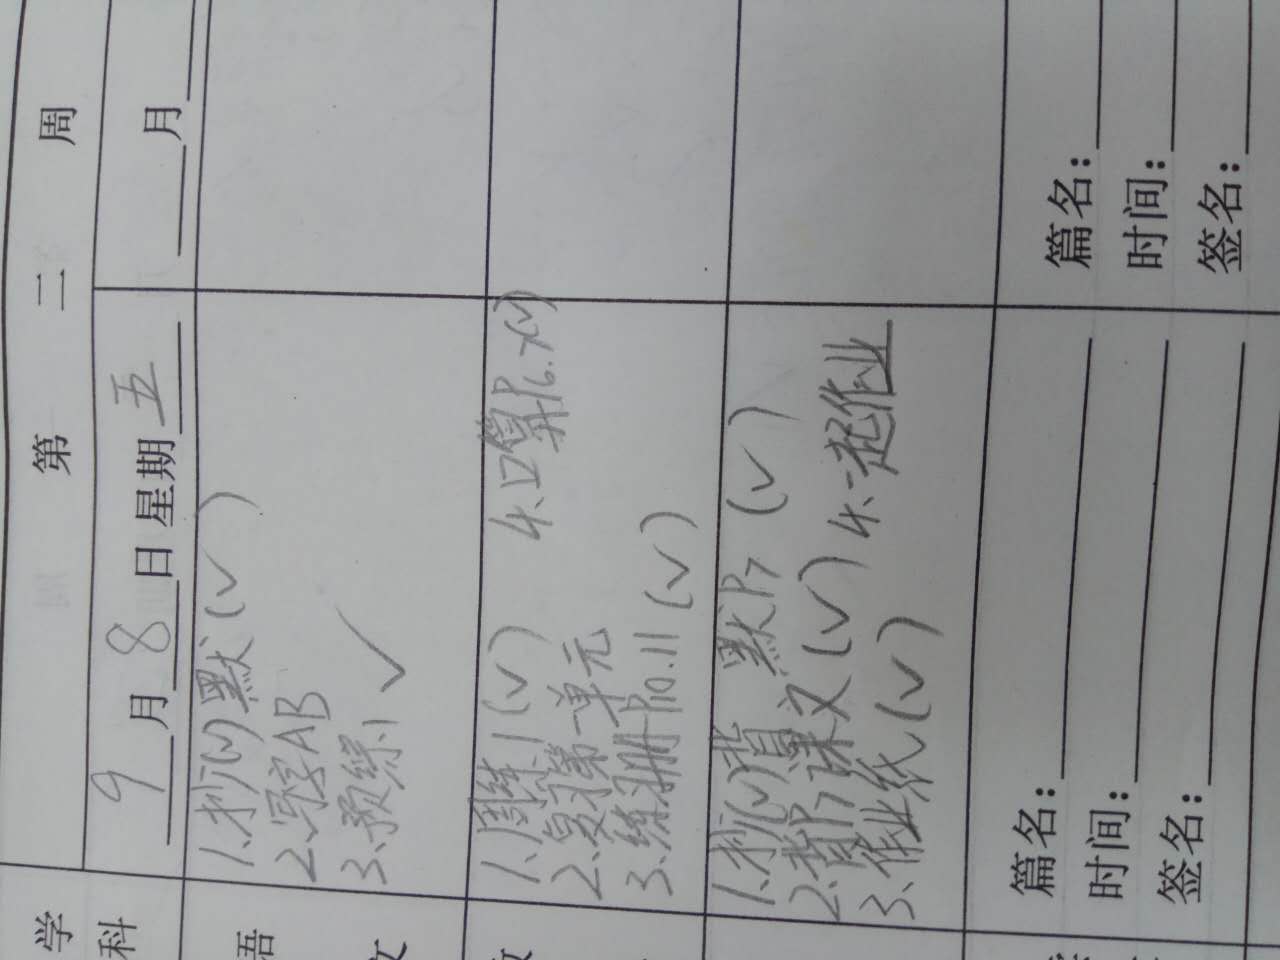 第 二 周
学科
9月8日星期五
月
语文
1.抄(√)默(√)
2.写字AB
3.预练1 √
数
1.周练1(√)
2.复习第一单元
3.练习册P10.11(√)
4.口算P6.7(√)
1.抄(√)背 默P7 (√)
2.背P7课文(√)
3.作业纸(√)
4.一起作业
篇名：
时间：
签名：
篇名：
时间：
签名：